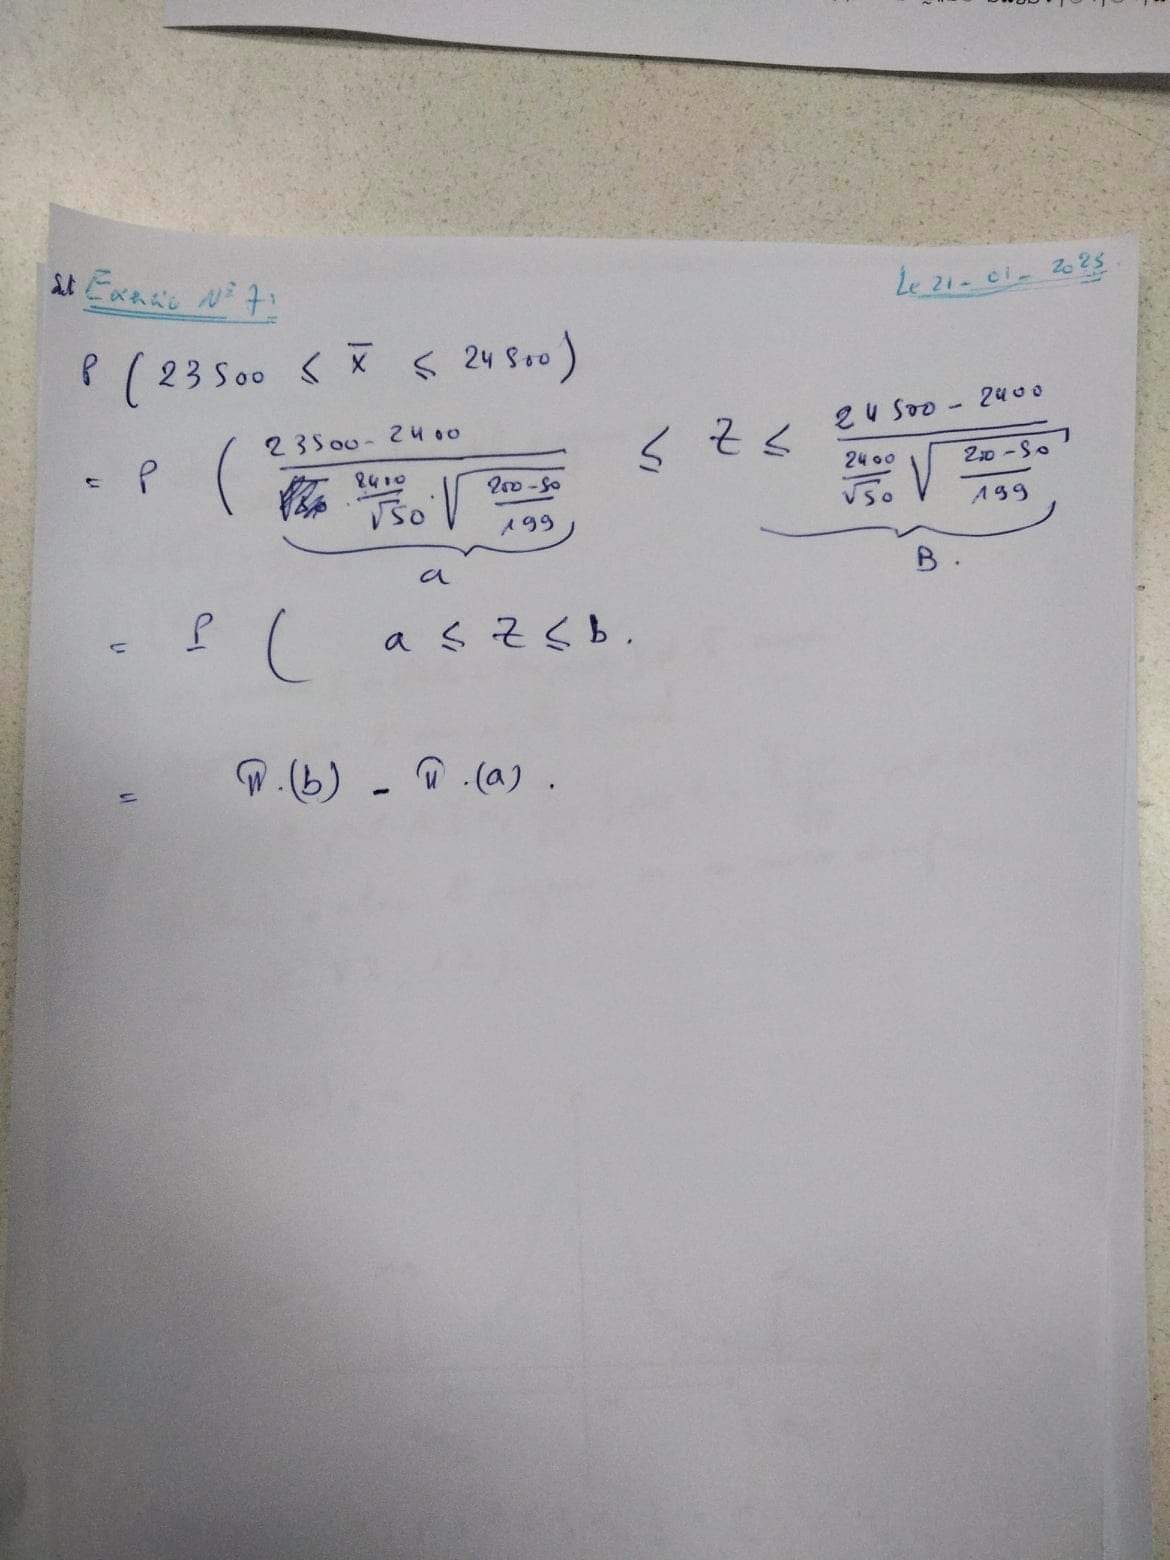 Exercic N° 7:
Le 21 - 01 - 2023
P ( 23500 ≤ x̄ ≤ 24500 )
= P ( (23500 - 2400) / (2400/√50 · √((200-50)/199)) ≤ Z ≤ (24500 - 2400) / (2400/√50 √((200-50)/199))
a B.
= P ( a ≤ Z ≤ b.
= π.(b) - π.(a).